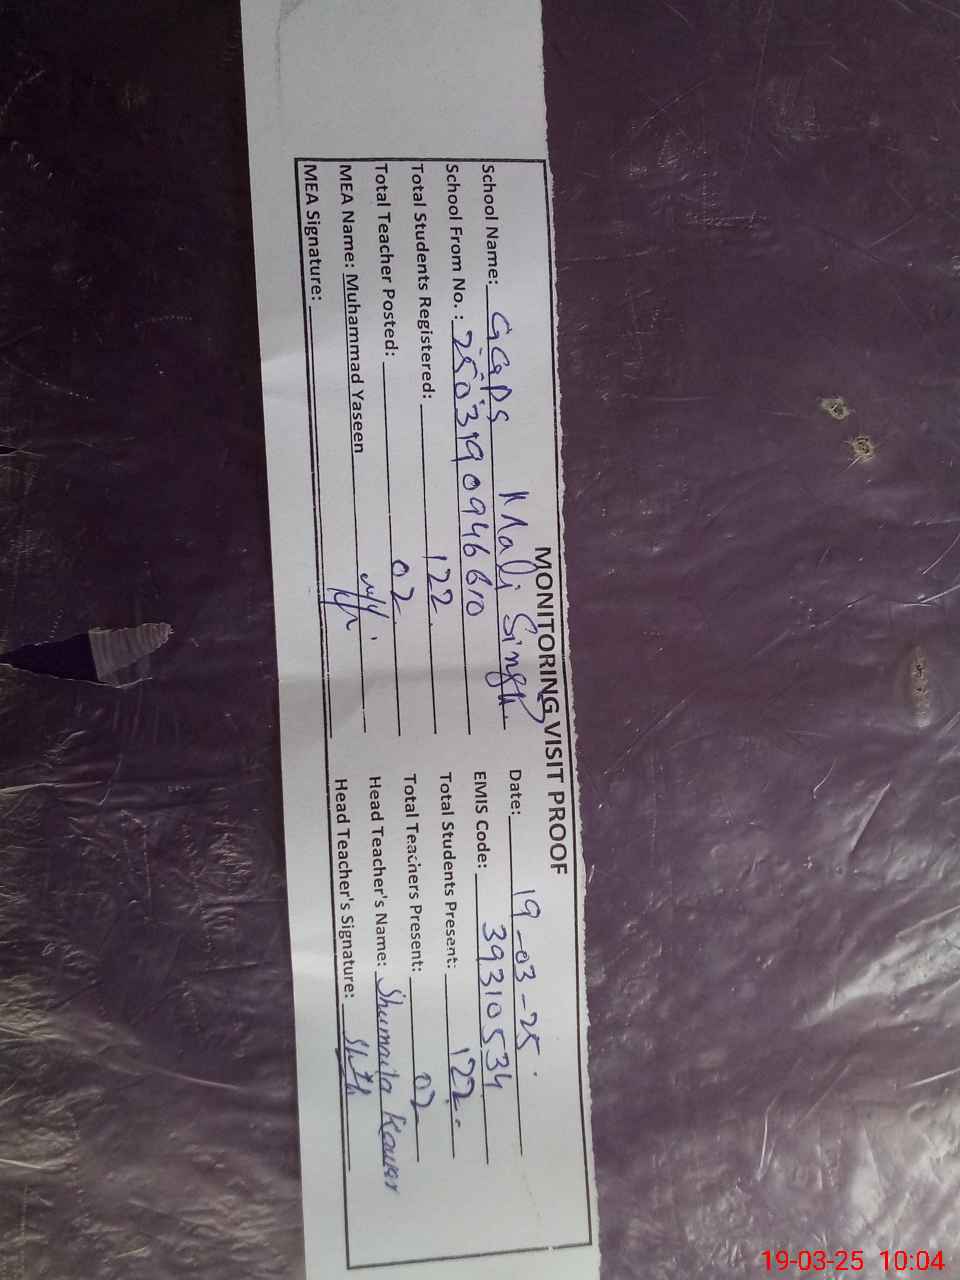 MONITORING VISIT PROOF
School Name: GGPS Mali Singh. Date: 19-03-25
School From No.: 2503190946610 EMIS Code: 39310534
Total Students Registered: 122 Total Students Present: 122
Total Teacher Posted: 02 Total Teachers Present: 02
MEA Name: Muhammad Yaseen Head Teacher's Name: Shumaila Kawser
MEA Signature: Head Teacher's Signature:
19-03-25 10:04